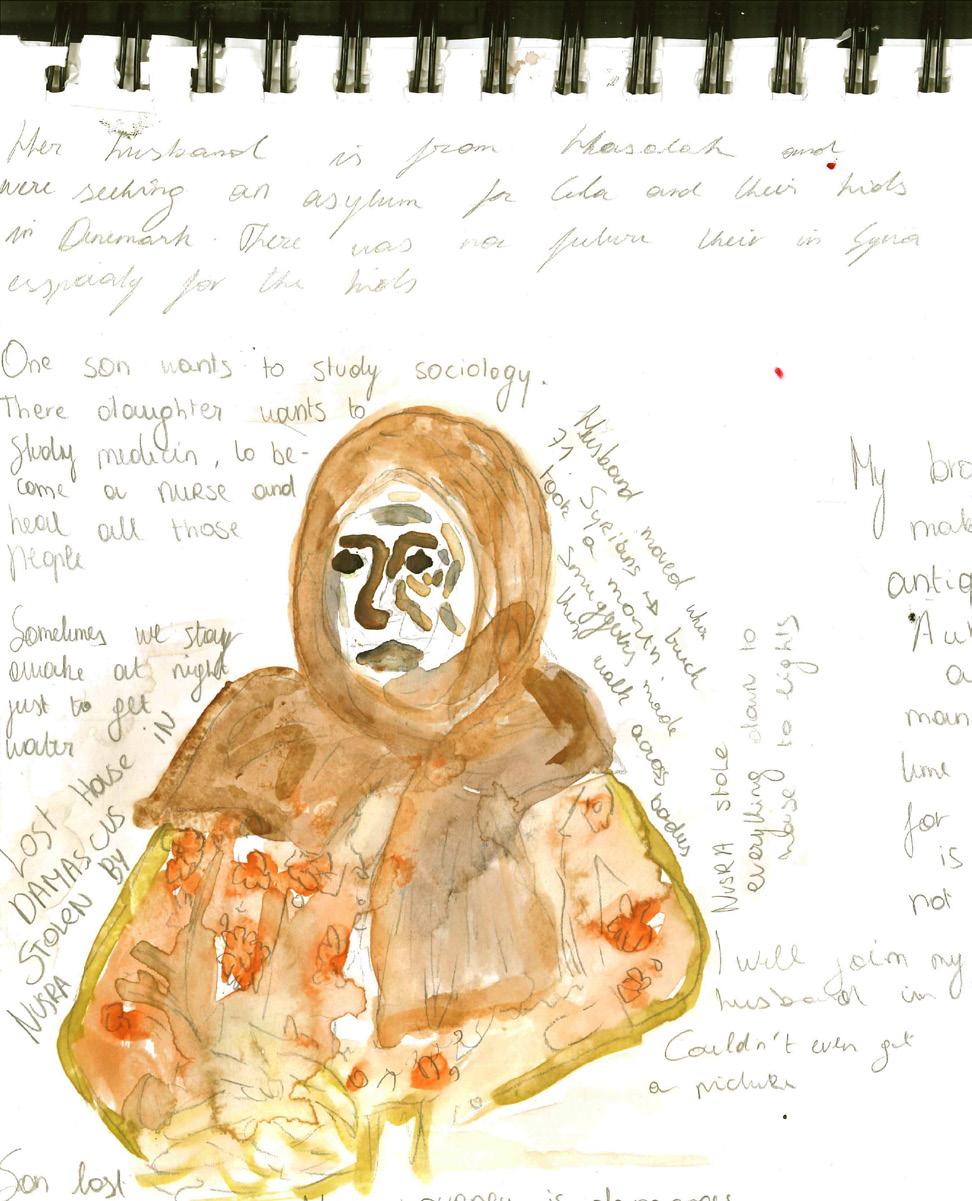 Her husband is from Hasakah and
were seeking an asylum for Lela and their kids
in Denemark. There was no future their in Syria
especialy for the kids
One son wants to study sociology.
There daughter wants to
study medicin, to be-
come a nurse and
heal all those
people
Sometimes we stay
awake at night
just to get
water
LOST House IN
DAMASCUS
STOLEN BY
NUSRA
Husband moved
71 Syrians
took a month
Smugglers made
them walk across bodies
NUSRA stole
everything
My bro
mak
antiq
a
man
time
for
is
not
I will join my
husband in
Couldn't even get
a picture
Son lost
journey is dangerous